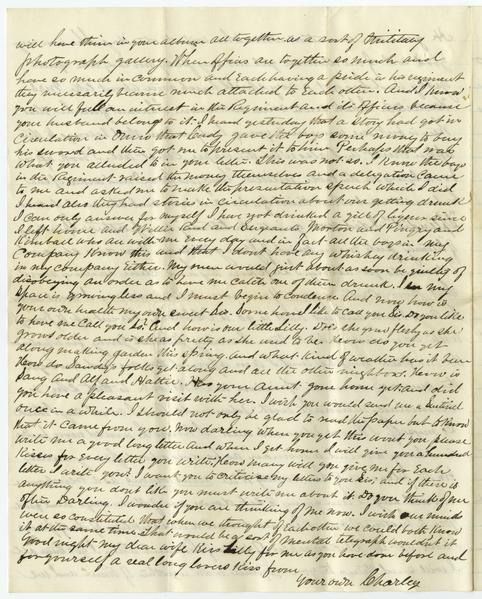 will have them in your album all together as a sort of Military
photograph gallery. When Officers are together so much and
have so much in common and each having a pride in his regiment
they necessarily become much attached to Each other. And I know
you will feel an interest in the Regiment and its Officers because
your husband belong to it. I heard yesterday that a story had got in
Circulation in that Cady gave the boys some money to buy
his sword and then got me to present it to him Perhaps that was
what you alluded to in your letter. This was not so. I know the boys
in the Regiment raised the money themselves and a delegation came
to me and asked me to make the presentation speech which I did
I heard also they had stories in circulation about our getting drunk
I can only answer for myself I have not drinked a gill of liquor since
I left home and Willie and Sergeants Morton and Pingry and
Kimball who are with me every day and in fact all the boys in my
Company know this and that I dont have any whiskey drinking
in my company either. My men would just about as soon be guilty of
disobeying an order as to have me catch one of them drunk. my
space is growing less and I must begin to condense And now how is
your own health my own sweet Sis. Some how I like to call you Sis do you like
to have me call you so? And how is our little Lilly. Does she grow fleshy as she
grows older and is she as pretty as she used to be. How do you get
along making garden this Spring and what kind of weather has it been
How do folks get along and all the other neighbors. How is
and Alf and Hattie. Has your Aunt gone home yet and did
you have a pleasant visit with her. I wish you would send me a Sentinel
once in a while. I should not only be glad to read the paper but to know
that it came from you. Now darling when you get this wont you please
write me a good long letter and when I get home I will give you a hundred
Kisses for every letter you write. How many will you give me for Each
letter I write you? I want you to criticise my letters to you Sis and if there is
anything you dont like you must write me about it. Do you think of me
often Darling. I wonder if you are thinking of me now. I wish our minds
were so constituted that when we thought of each other we could both know
it at the same time. That would be a sort of mental telegraph wouldnt it
Good night my dear wife Kiss Lilly for me as you have done before and
for yourself a real long lovers Kiss from
Your own Charley